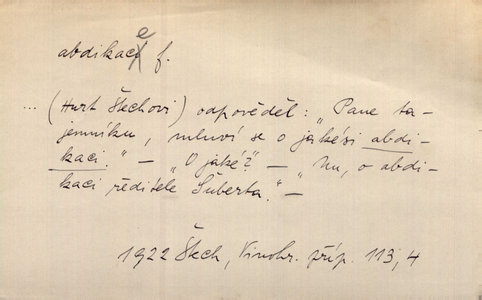 abdikace f.
... (Hurt Štechovi) odpověděl: „Pane ta-
jemníku, mluví se o jakési abdi-
kaci.“ – „O jaké?“ – „Nu, o abdi-
kaci ředitele Šuberta.“ –
1922 Štech, Vinohr. příp. 113, 4